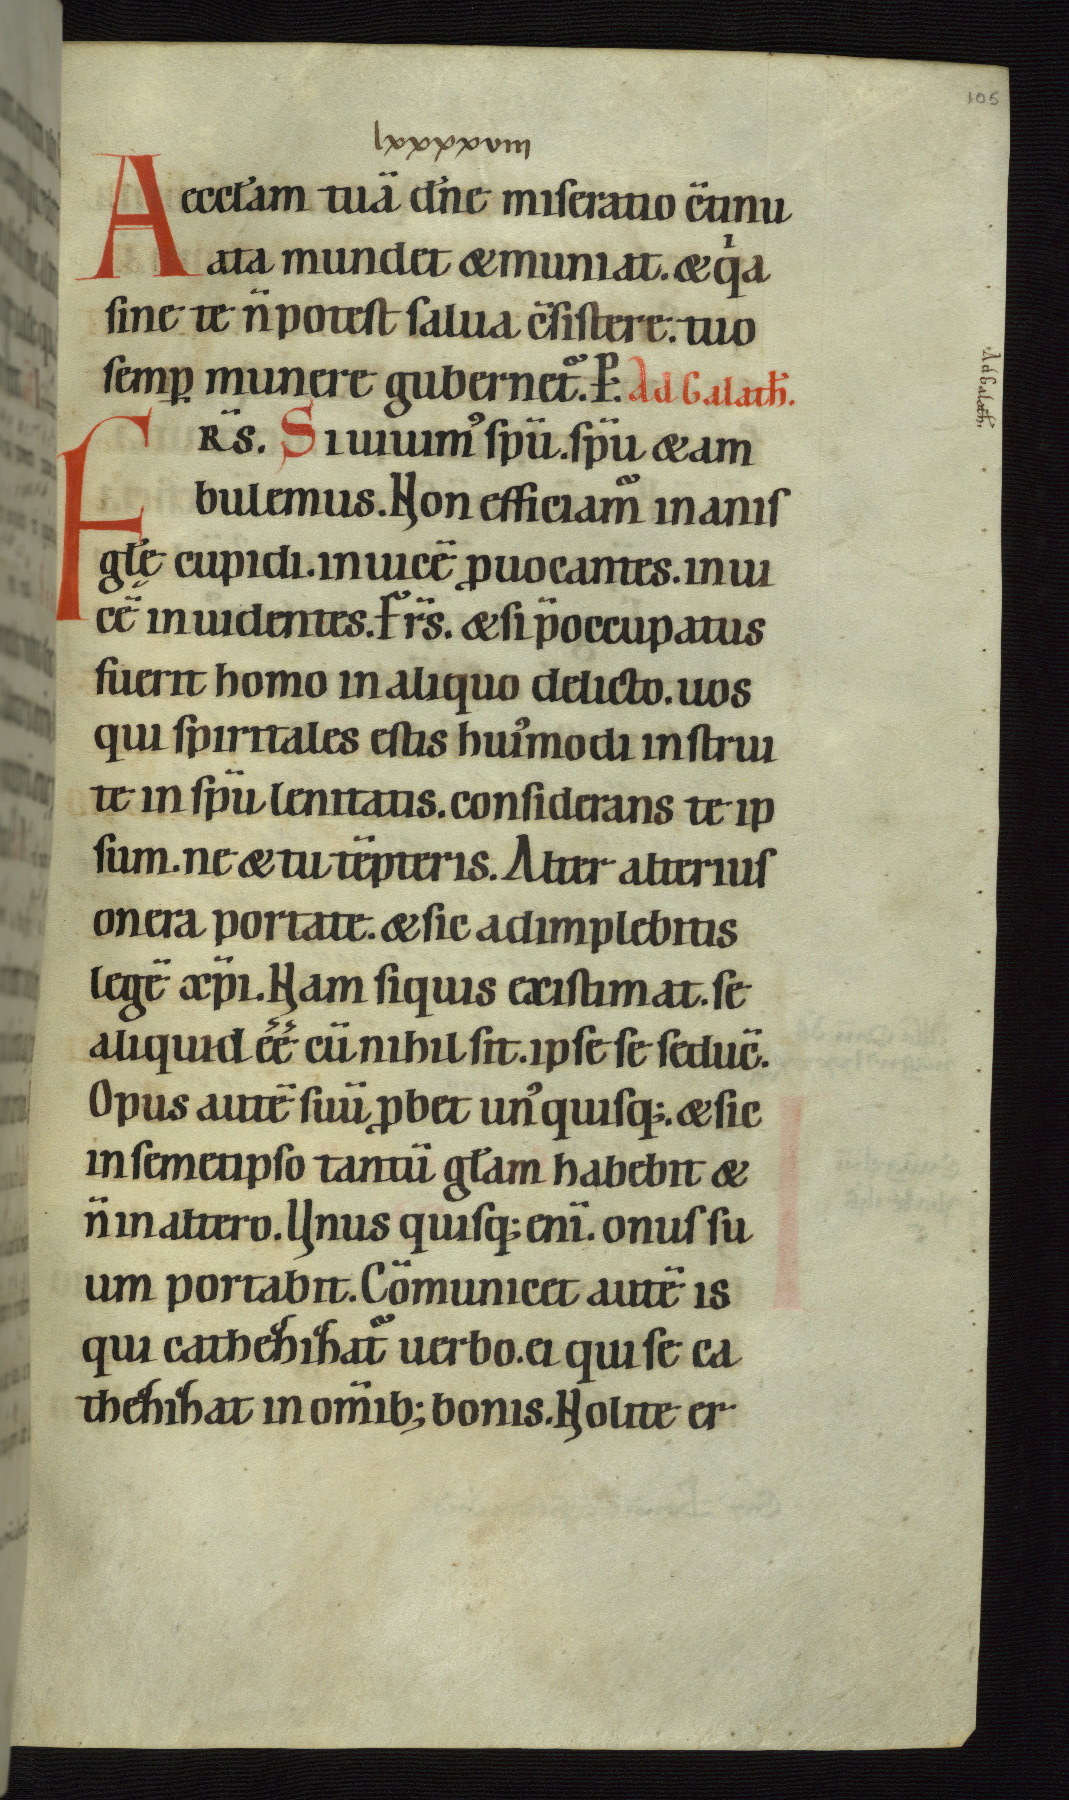 105
lxxxxxviii
A eccl̄am tuā dn̄e miseratio c̄tinu
ata mundet & muniat. & qͥa
sine te n̄ potest salua c̄sistere. tuo
semꝑ munere gubernet᷑. P̲. Ad Galath̄.
Ad Galath̄.
FRS̄. Si uiuimꝰ sp̄u. sp̄u & am
bulemus. Non efficiam᷑ inanis
gl̄e cupidi. inuicē ꝓuocantes. inui
cē inuidentes. Fr̄s. & si p̄occupatus
fuerit homo in aliquo delicto. uos
qui spiritales estis huiꝰmodi instrui
te in sp̄u lenitatis. considerans te ip
sum. ne & tu tēpteris. Alter alterius
onera portate. & sic adimplebitis
legē xp̄i. Nam siquis existimat. se
aliquid ēē cū nihil sit. ipse se seduc̄.
Opus autē suū ꝓbet unꝰquisq;. & sic
in semetipso tantū gl̄am habebit &
n̄ in altero. Unus quisq; enī. onus su
um portabit. Cōmunicet autē is
qui cathehihat᷑ uerbo. ei qui se ca
thehihat in om̄ib; bonis. Nolite er